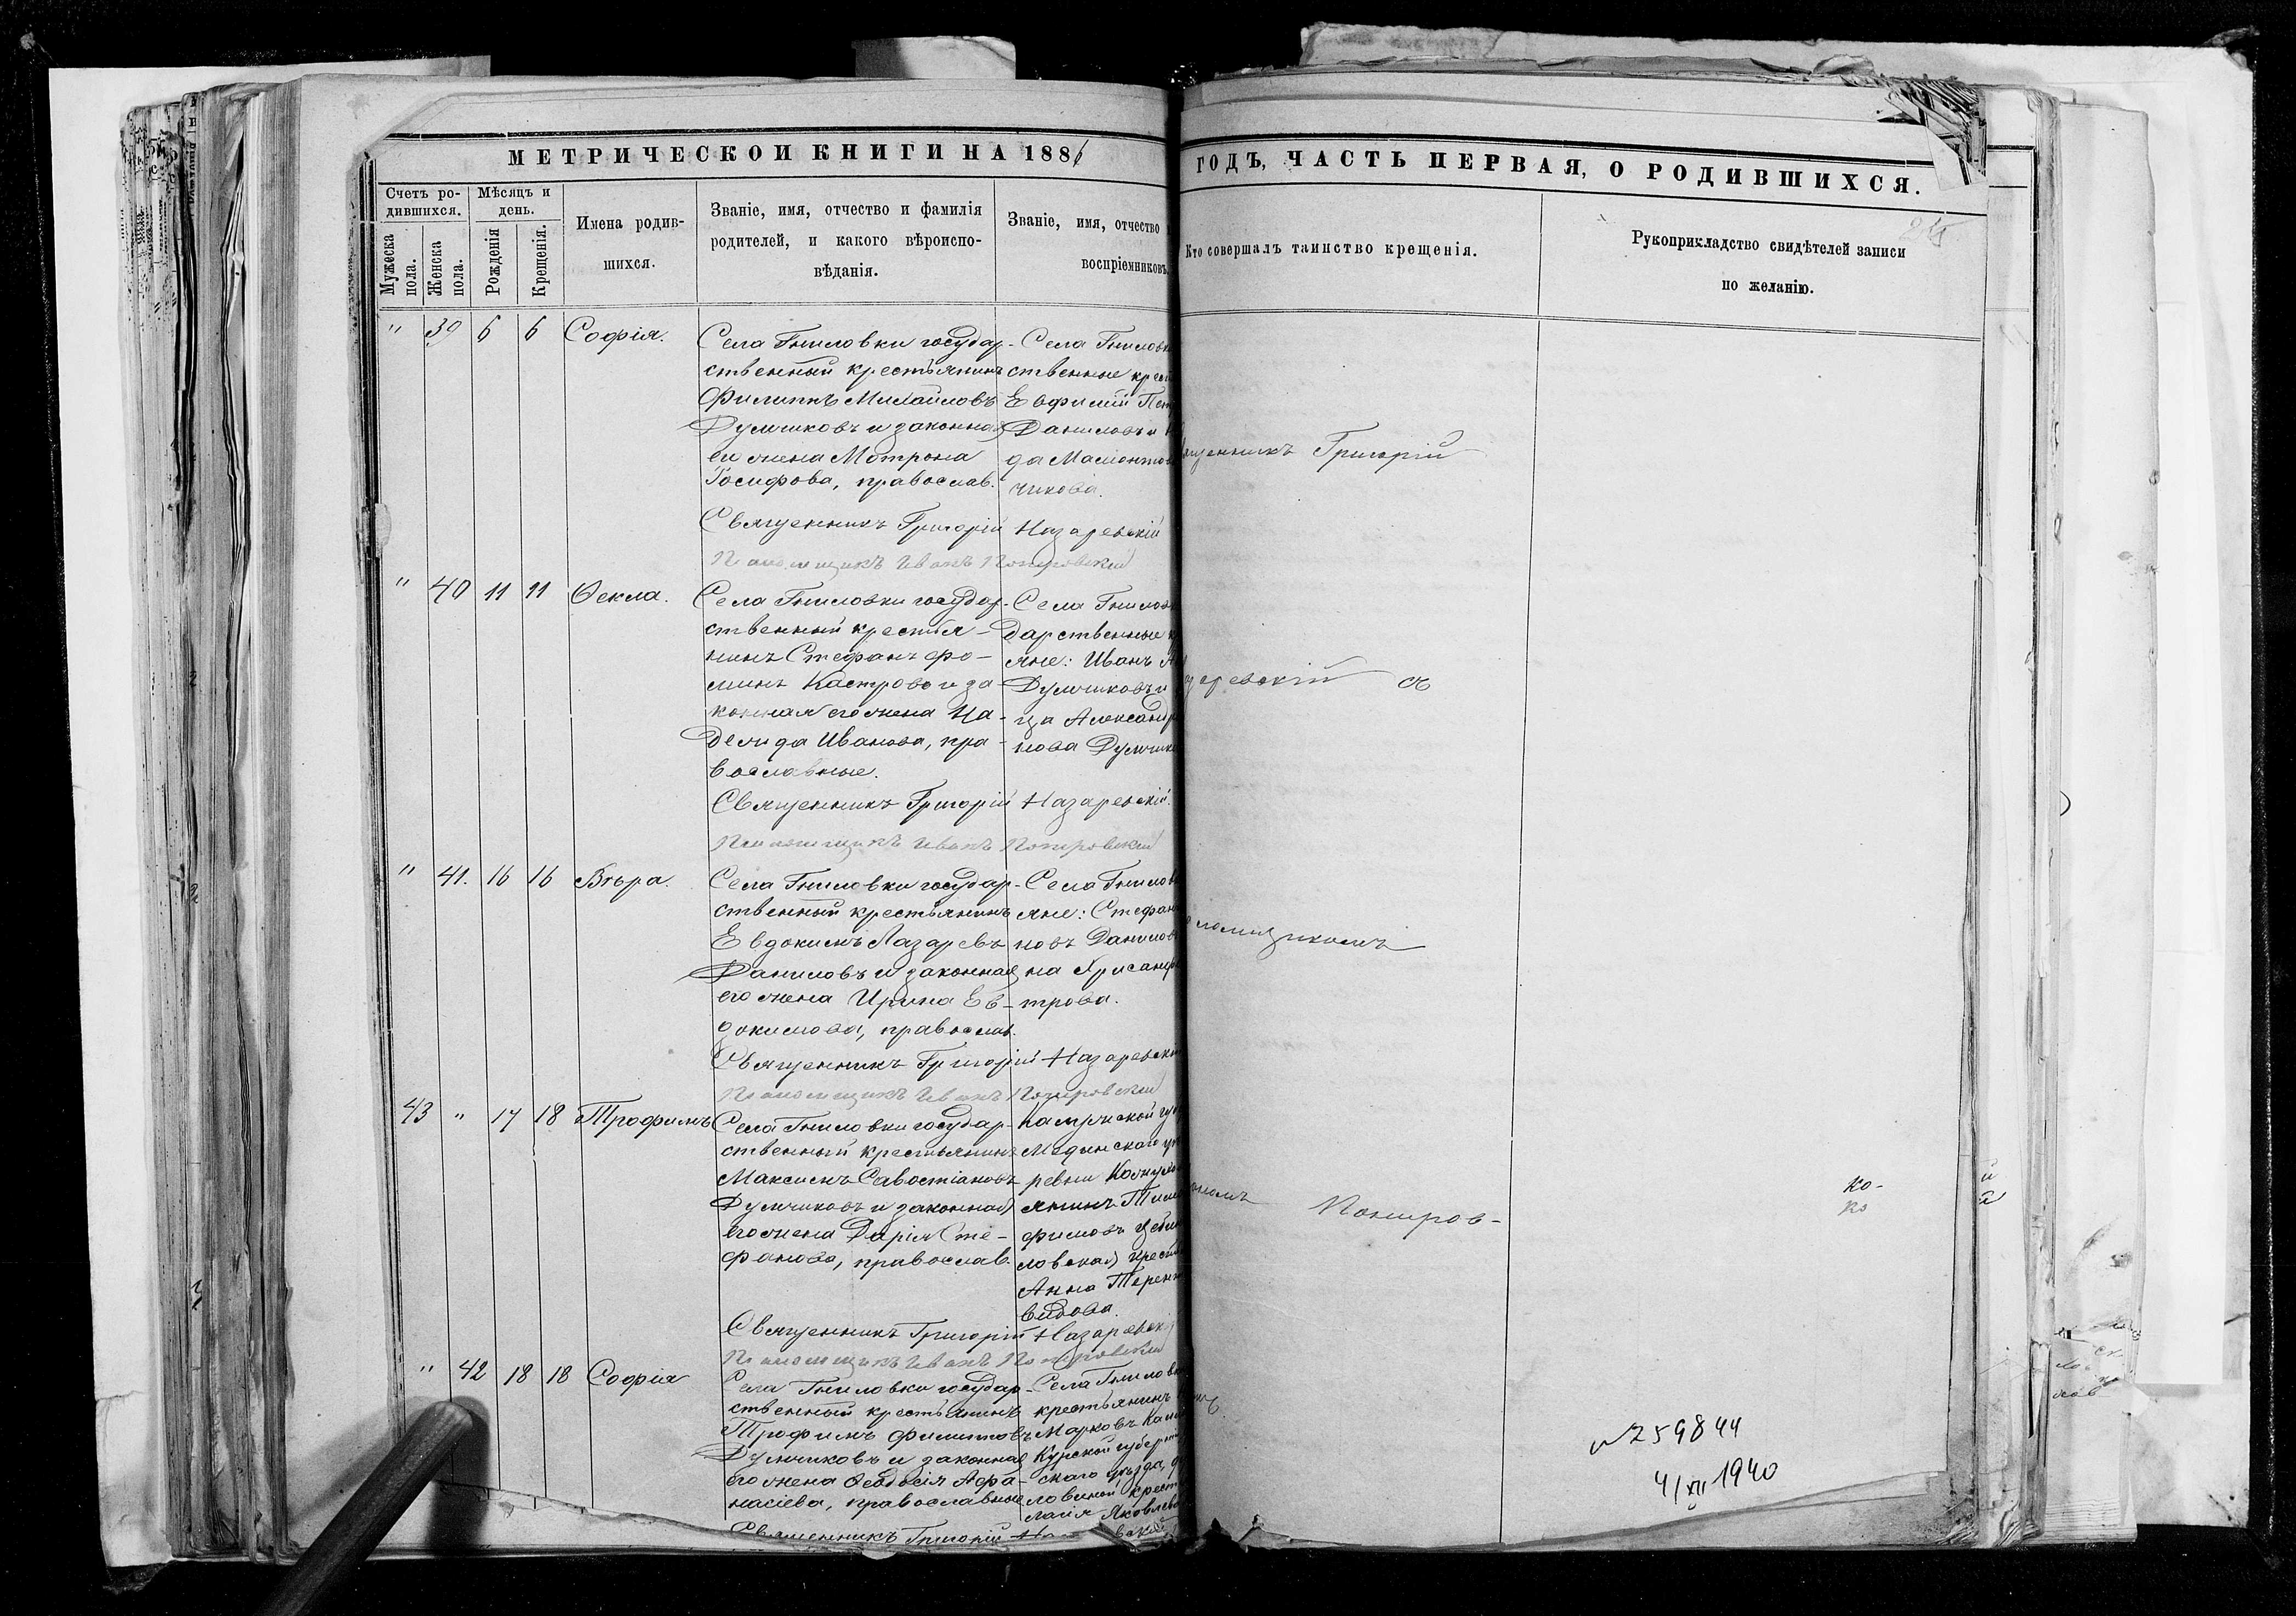 МЕТРИЧЕСКОЙ КНИГИ НА 1886
ГОДЪ, ЧАСТЬ ПЕРВАЯ, О РОДИВШИХСЯ.
Счетъ ро-
дившихся.
Мужеска
пола.
Женска
пола.
Мѣсяцъ и
день.
Рожденія
Крещенія.
Имена родив-
шихся.
Званіе, имя, отчество и фамилія
родителей, и какого вѣроиспо-
вѣданія.
Званіе, имя, отчество
воспріемниковъ.
Кто совершалъ таинство крещенія.
Рукоприкладство свидѣтелей записи
по желанію.
" 39 6 6 Софія.
Села Гниловки государ-
ственный крестьянинъ
Филиппъ Михайловъ
Думчиковъ и законная
его жена Матрона
Іосифова, православ.
Села Гниловки
ственные крес
Евфимій Пет
Даниловъ и
да Мамонтов
чикова.
Священникъ Григорій Назаревскій
Псаломщикъ Иванъ
" 40 11 11 Ѳекла.
Села Гниловки государ-
ственный крестья-
нинъ Стефанъ Фо-
минъ Костровъ и за-
конная его жена На-
дежда Иванова, пра-
вославные.
Села Гнилов
дарственные
яне: Иванъ
Думчиковъ и
ца Александр
нова Думчик
Священникъ Григорій Назаревскій.
Псаломщикъ Иванъ
" 41. 16 16 Вѣра.
Села Гниловки государ-
ственный крестьянинъ
Евдокимъ Лазаревъ
Даниловъ и законная
его жена Ирина Ев-
докимова, православ.
Села Гнилов
яне: Стефан
новъ Данилов
на Хрисанф
трова.
Священникъ Григорій Назаревскій
Псаломщикъ Иванъ
43 " 17 18 Трофимъ
Села Гниловки государ-
ственный крестьянинъ
Максимъ Савостіановъ
Думчиковъ и законная
его жена Дарія Сте-
фанова, православ.
Калужской гу
Мединскаго у
ревни
янинъ Тим
фимовъ
ловская крест
Анна Терен
видова.
Священникъ Григорій Назаревскій
Псаломщикъ Иванъ
" 42 18 18 Софія
Села Гниловки государ-
ственный крестьянинъ
Трофимъ Филиповъ
Думчиковъ и законная
его жена Ѳеодосія Афа-
насіева, православные
Села Гнилов
крестьянинъ
Марковъ
Курской губерн
скаго уѣзда,
ловиной крест
Яковлева
Священникъ Григорій
щенникъ Григорій
заревскій съ
ломщикомъ
аномъ
ко-
ко
№259844
4/XII 1940